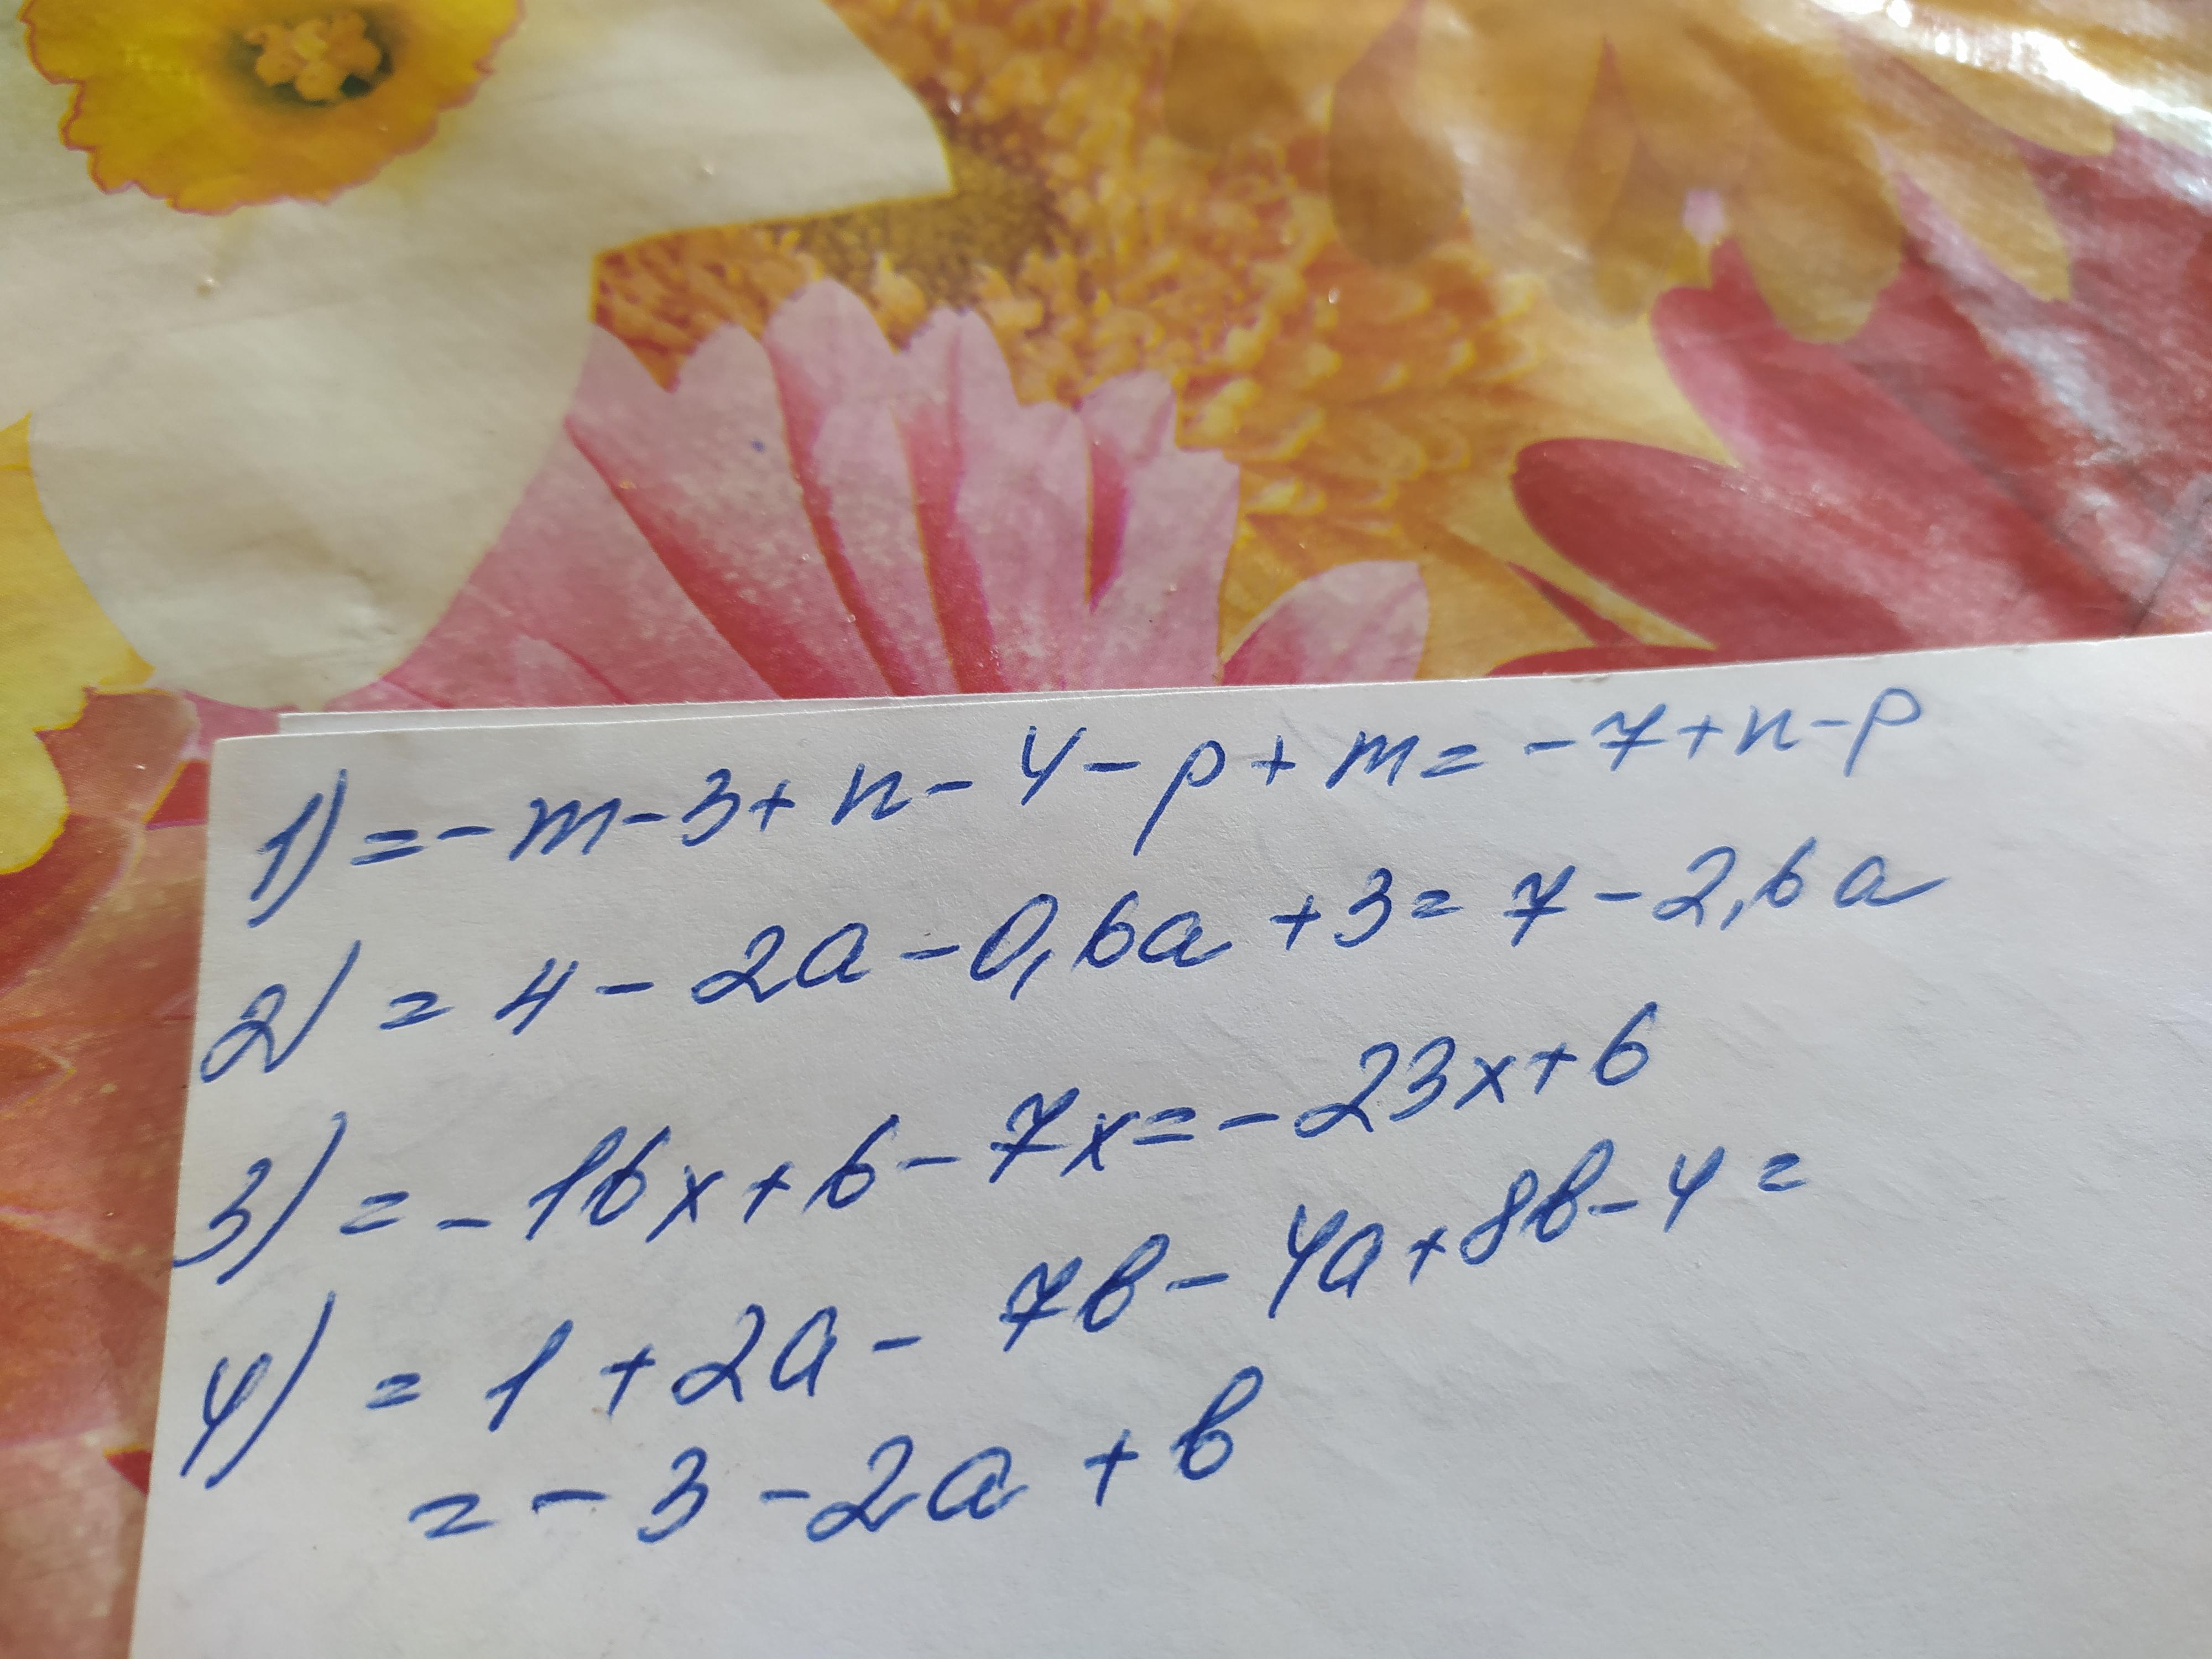 1) = - m - 3 + n - 4 - p + m = - 7 + n - p
2) = 4 - 2a - 0,6a + 3 = 7 - 2,6a
3) = - 16x + 6 - 7x = - 23x + 6
4) = 1 + 2a - 7b - 4a + 8b - 4 =
= - 3 - 2a + b